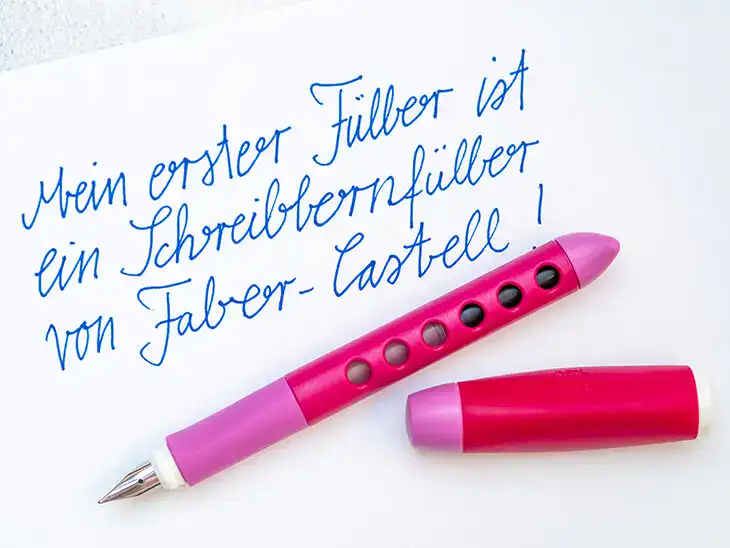 Mein erster Füller ist
ein Schreiblernfüller
von Faber-Castell !